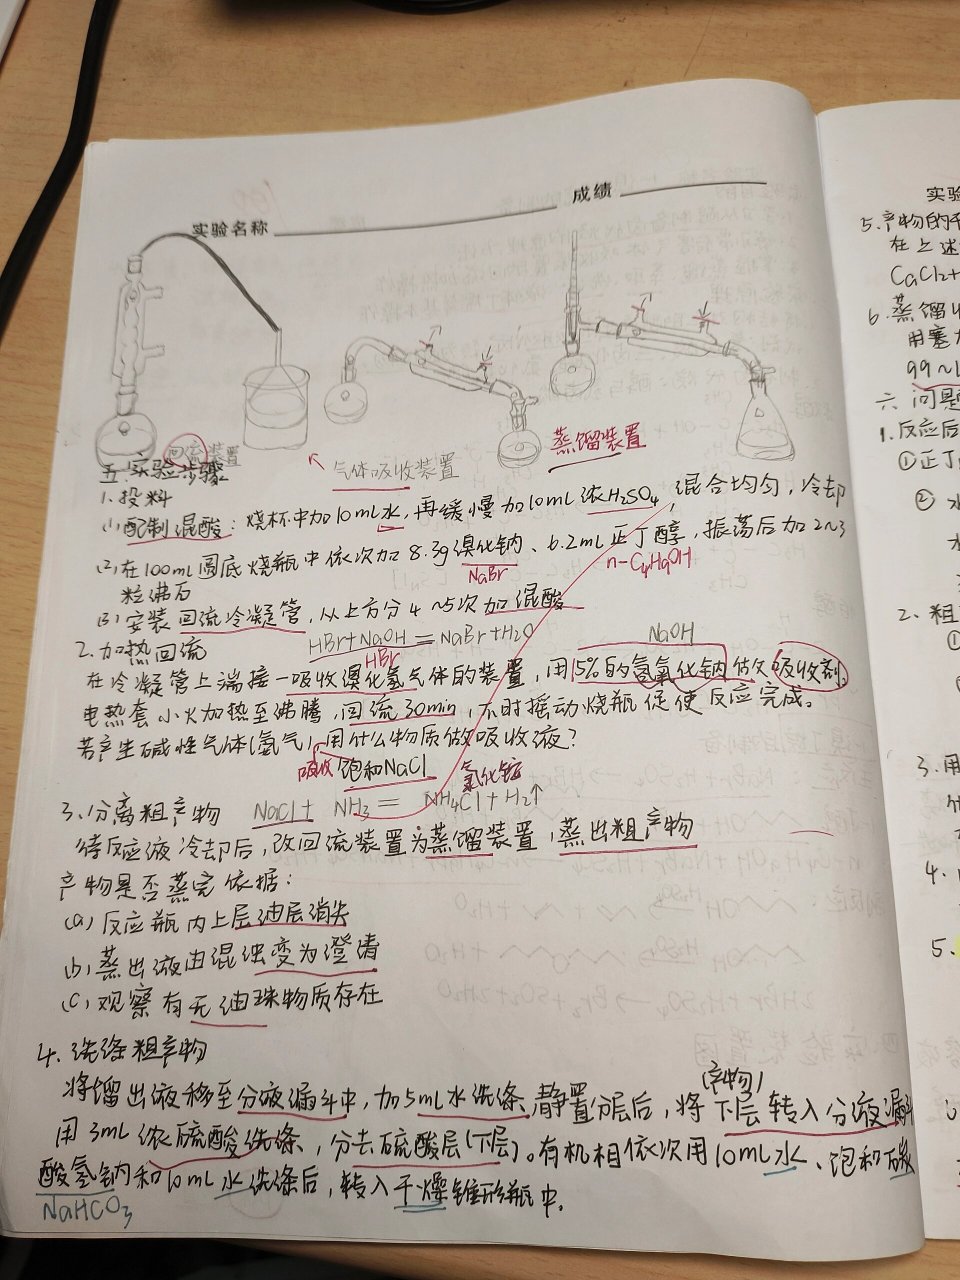 实验名称 成绩
回流装置
气体吸收装置
蒸馏装置
五.实验步骤
1.投料
(1)配制混酸：烧杯中加10mL水,再缓慢加10mL浓H2SO4,混合均匀，冷却
(2)在100mL圆底烧瓶中依次加8.3g溴化钠、6.2mL正丁醇，振荡后加2~3
NaBr n-C4H9OH
粒沸石
(3)安装回流冷凝管,从上方分4~5次加混酸
2.加热回流 HBr+NaOH=NaBr+H2O NaOH
HBr
在冷凝管上端接一吸收溴化氢气体的装置，用5%的氢氧化钠做吸收剂。
电热套小火加热至沸腾,回流30min,不时摇动烧瓶促使反应完成。
若产生碱性气体(氨气),用什么物质做吸收液?
吸收 饱和NaCl 氯化铵
3.分离粗产物 NaCl+ NH3= NH4Cl+H2↑
待反应液冷却后,改回流装置为蒸馏装置,蒸出粗产物
产物是否蒸完依据:
(a)反应瓶内上层油层消失
(b)蒸出液由混浊变为澄清
(c)观察有无油珠物质存在
4.洗涤粗产物
(产物)
将馏出液移至分液漏斗中,加5mL水洗涤,静置分层后，将下层转入分液漏斗
用3mL浓硫酸洗涤，分去硫酸层(下层)。有机相依次用10mL水、饱和碳
酸氢钠和10mL水洗涤后，转入干燥锥形瓶中。
NaHCO3
实验
5.产物的干
在上述
CaCl2+
6.蒸馏收
用塞
99~1
六 问题
1.反应后
①正丁
② 水
水
2.粗
①
3.用
4.
5.